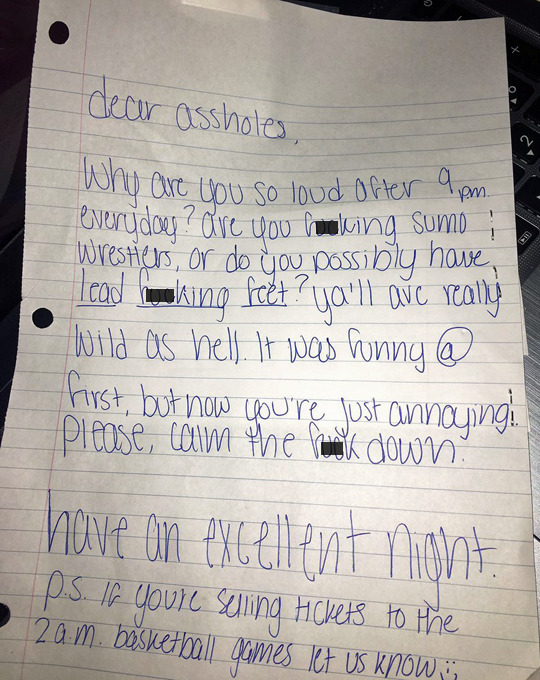 dear assholes,
Why are you so loud after 9pm.
everyday? are you f██king sumo
wrestlers, or do you possibly have
lead f██king feet? ya'll are really
wild as hell. It was funny @
first, but now you're just annoying!
please, calm the f██k down.
have an excellent night.
p.s. if you're selling tickets to the
2 a.m. basketball games let us know;;